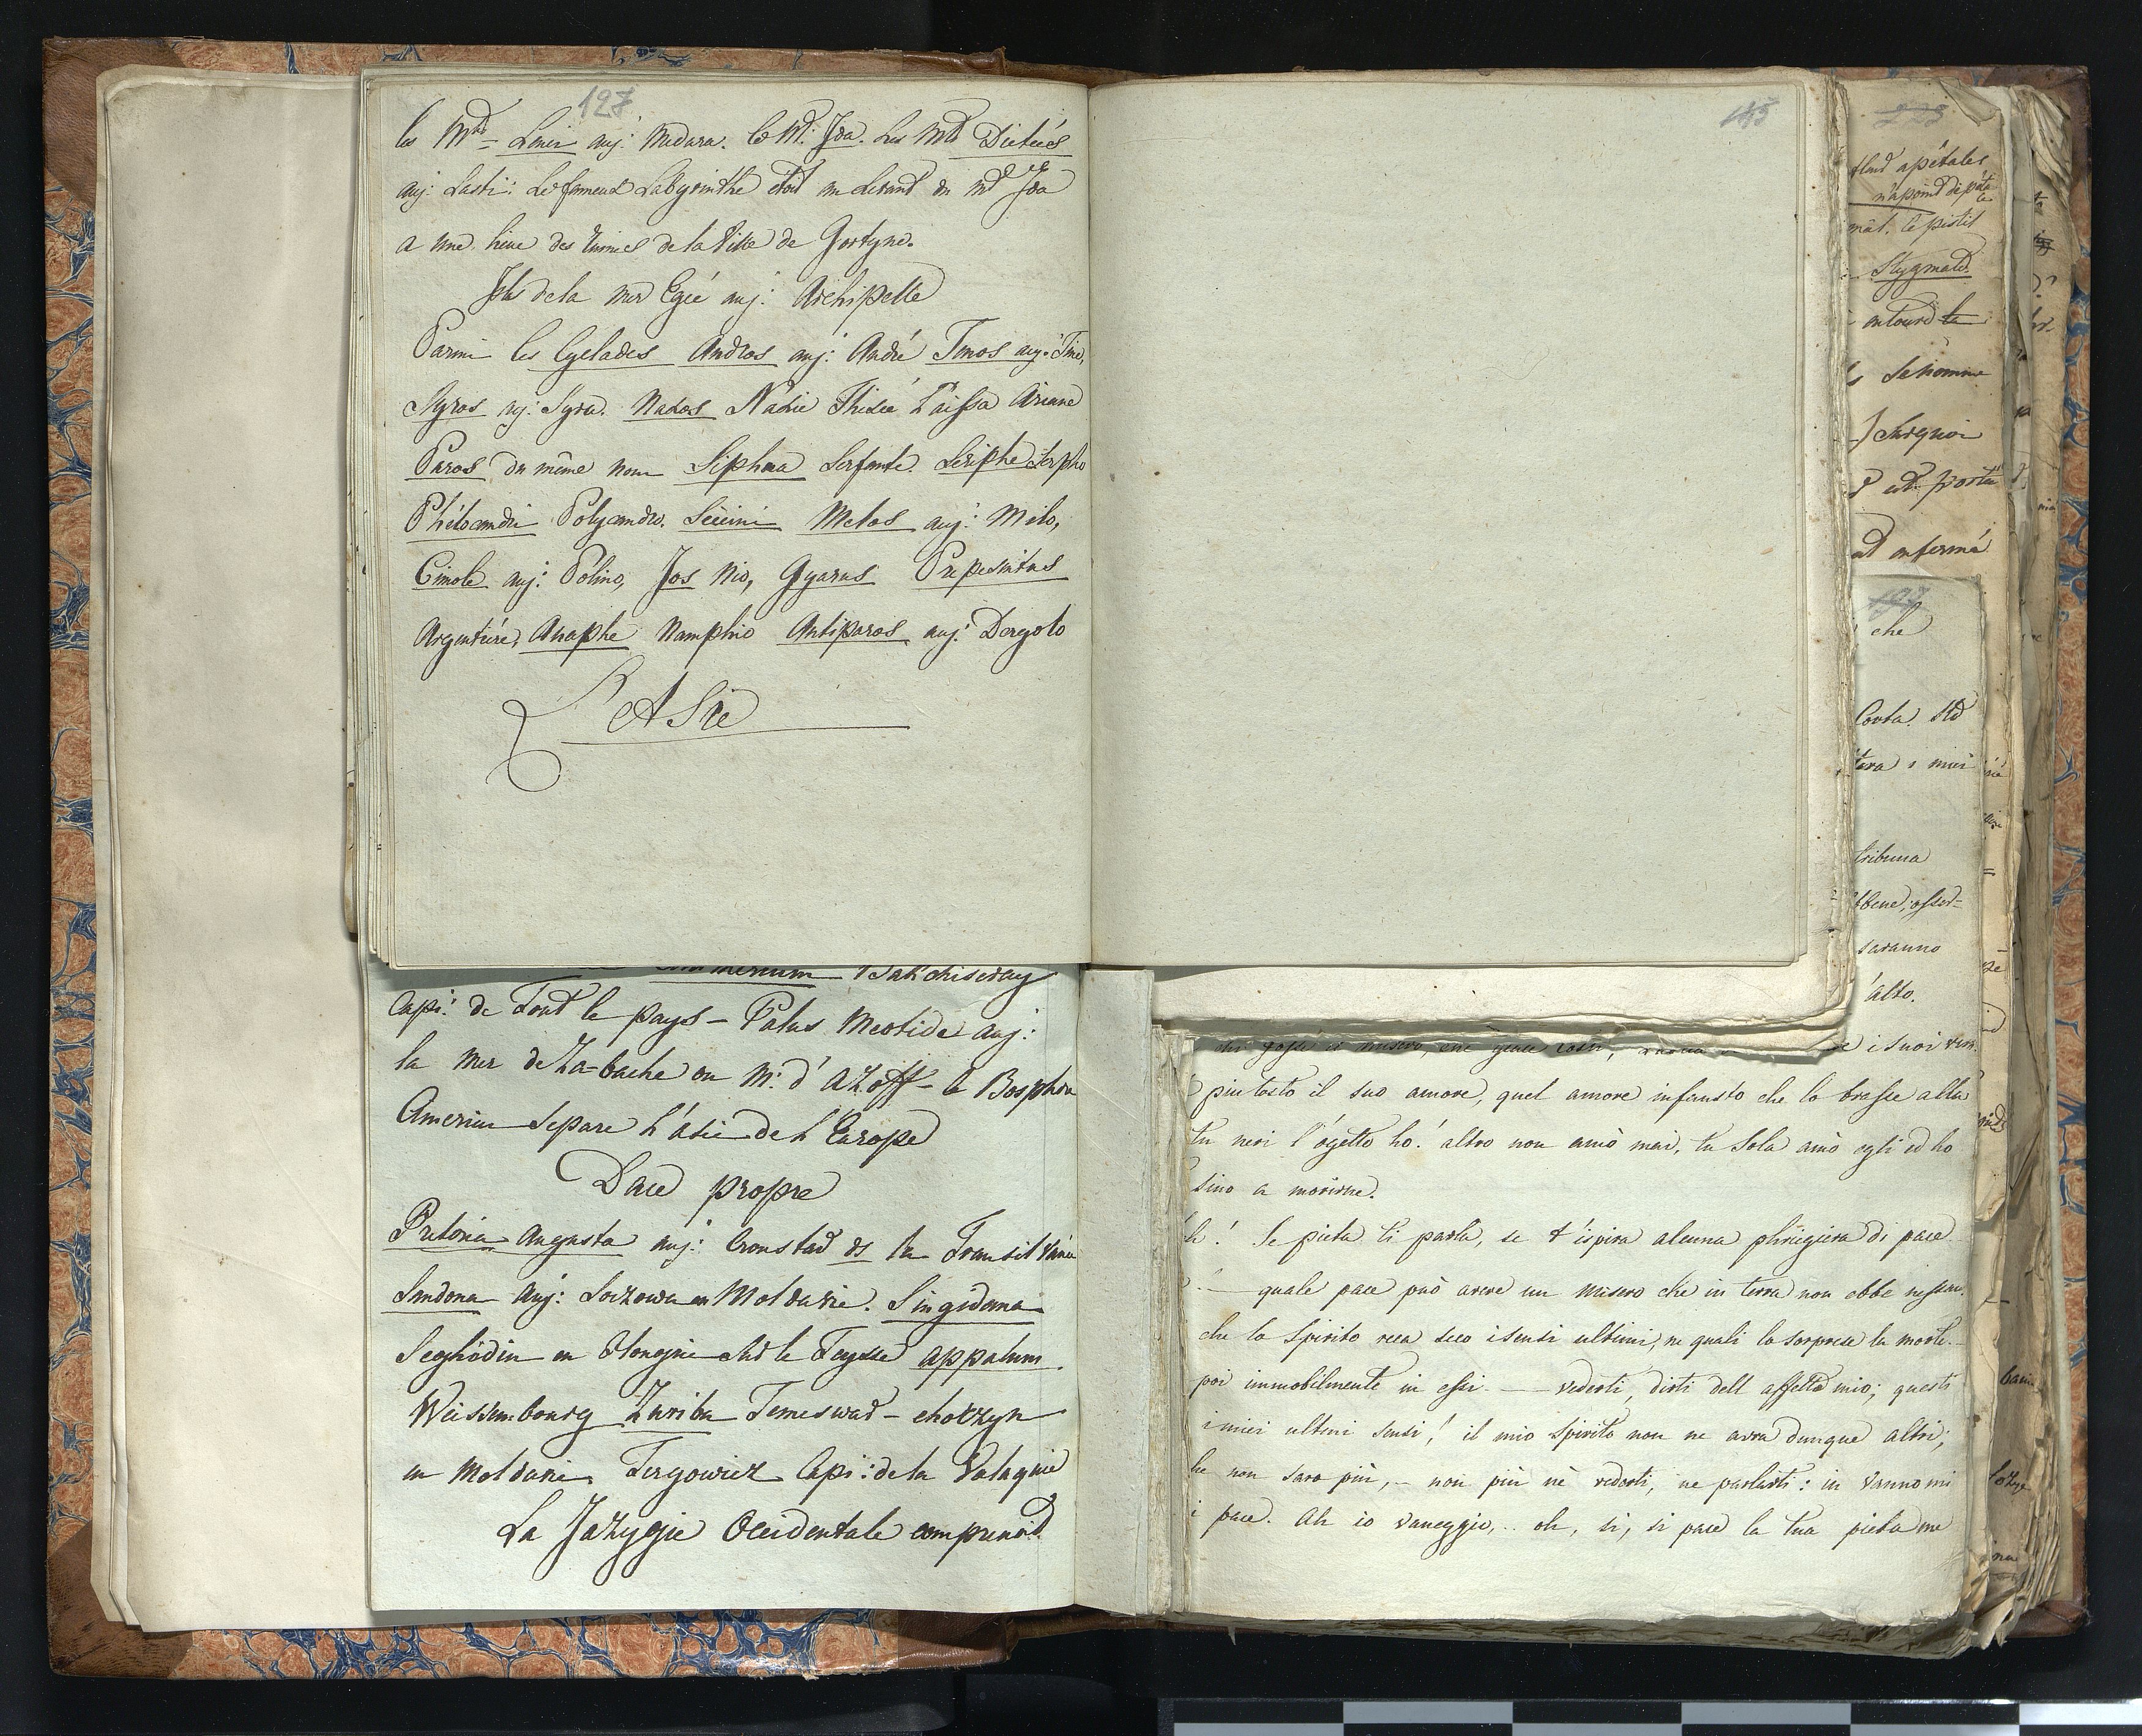 127
les Mts Leuci auj: Madara. Le Mt: Ida. Les Mts Dictées
auj: Lasti: Le fameux Labyrinthe étoit au Levant du mt Ida
a une lieue des ruines de la Ville de Gortyne.
Isles de la mer Egée auj: Archipelle
Parmi les Cyclades Andros auj: André Tenos auj: Tine,
Syros auj: Syra. Naxos Naxie Thésée Laissa Ariane
Paros du même nom Siphna Serfante. Seriphe Serpho
Philocandri Polycandro. Sicini Melos auj: Milo,
Cimole auj: Polino, Ios Nio, Gyarus Prepesintus
Argentiére, Anaphe Namphio Antiparos auj:
L'Asie
Bakchiseray
Capi: de Tout le pays – Palus Meotide auj:
la Mer de Za-bache ou M: d'Azoff – le Bosphore
Cimerien Separe L'Asie de L'Europe
Dace propre
Pretoria Augusta auj: Cronstad ds la Transilvanie
Sandona Auj: Soczowa en Moldavie. Singidana
Seghédin en Hongrie sur le Teysse appulum
Weissembourg Zuriba Temeswar – chotzyn
en Moldavie Tergowicz Capi: de la Valaquie
La Jazygie Occidentale comprenoit
145
piutosto il suo amore, quel amore infausto che lo trasse alla
tu neri l'ogetto ho! altro non amò mai, tu Sola amò egli ed ho
sino a morirne.
h! Se pieta ti parla, se t'ispira alcuna phregiera di pace
quale pace può avere un misero che in terra non ebbe nessun.
che lo Spirito reca seco i sensi ultimi, ne quali lo sorprese la morte.
poi immobilmente in essi. — vederti, dirti dell affetto mio; questi
i miei ultimi sensi! il mio Spirito non ne avra dunque altri;
he non saro più, – non più nè vederti, ne parlarti: in vanno mi
i pace. Ah io vaneggio, .. oh, si, si pace la tua pieta me
223
apétales
n'a point de péta
les
le pistil
Stygmate
entourés
Se nomme
est porté
enfermé
197
che
miei
tribuna
saranno
alto.
e i suoi